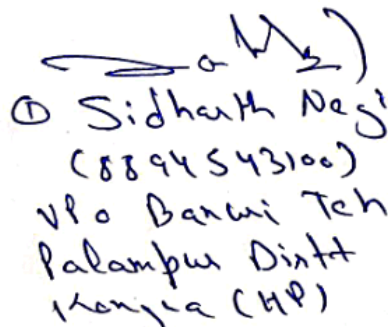 ① Sidharth Negi
(8894543100)
VPO Banuri Teh
Palampur Distt
Kangra (HP)